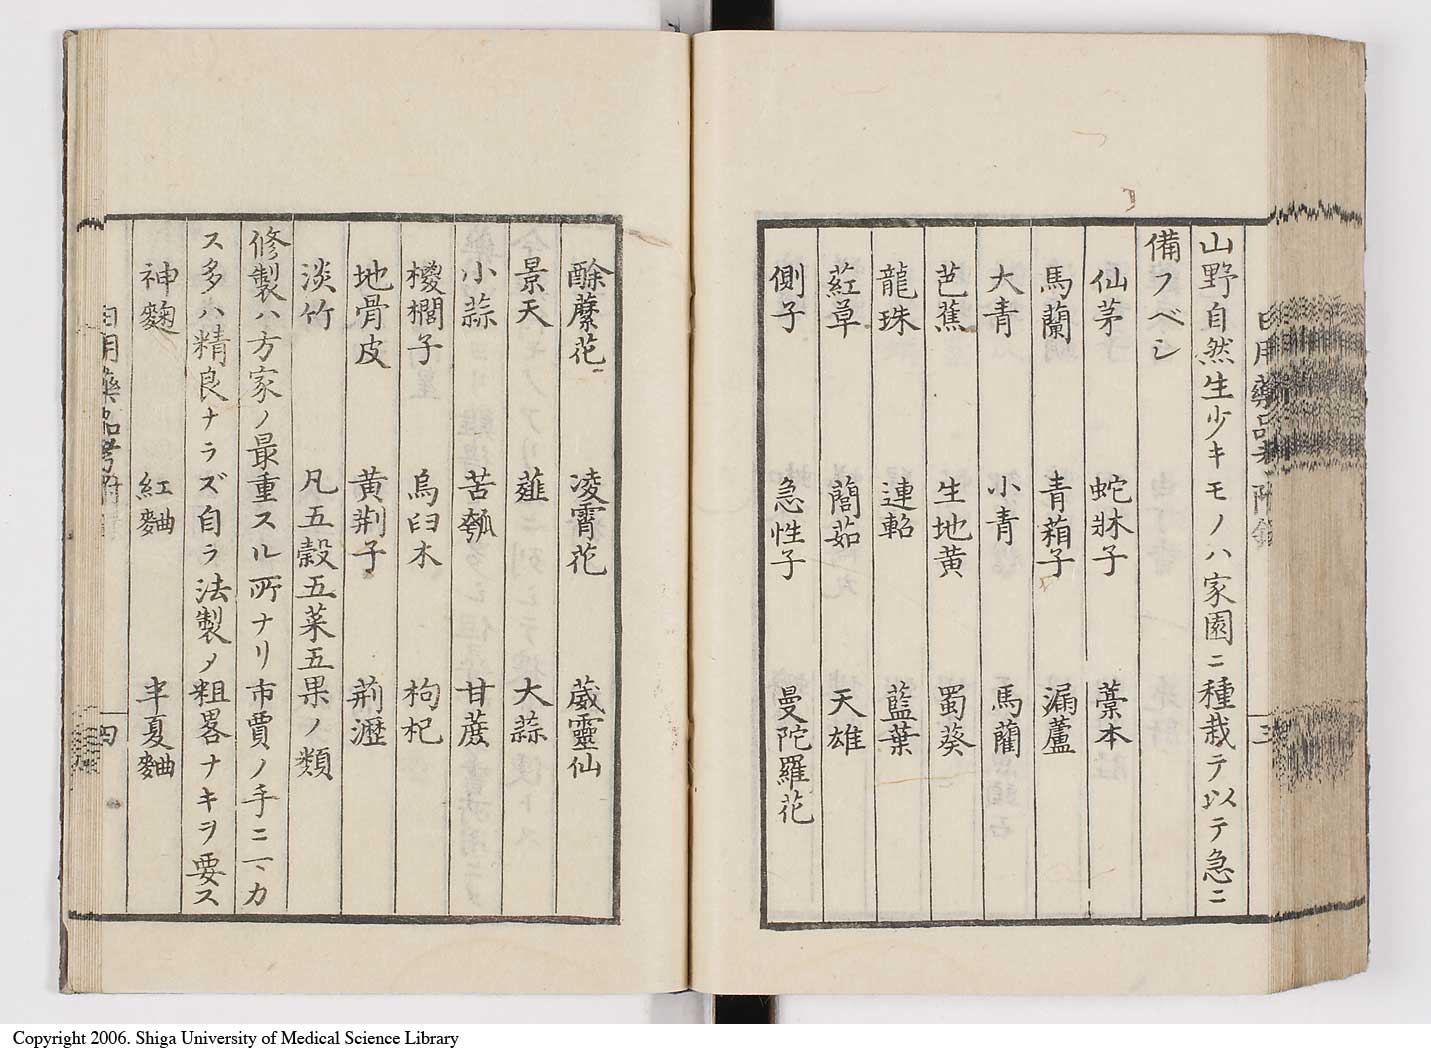 山野自然生少キモノハ家園ニ種栽テ以テ急ニ
備フベシ
仙茅 蛇牀子 藁本
馬蘭 青葙子 漏蘆
大青 小青 馬藺
芭蕉 生地黄 蜀葵
龍珠 連軺 藍葉
葒草 䕡茹 天雄
側子 急性子 曼陀羅花
日用藥品考 附錄 三
酴蘼花 凌霄花 葳靈仙
景天 薤 大蒜
小蒜 苦瓠 甘蔗
椶櫚子 烏臼木 枸杞
地骨皮 黄荆子 荊瀝
淡竹 凡五穀五菜五果ノ類
修製ハ方家ノ最重スル所ナリ市賈ノ手ニマカ
ス多ハ精良ナラズ自ラ法製メ粗畧ナキヲ要ス
神麴 紅麯 半夏麯
日用藥品考附 四
Copyright 2006. Shiga University of Medical Science Library